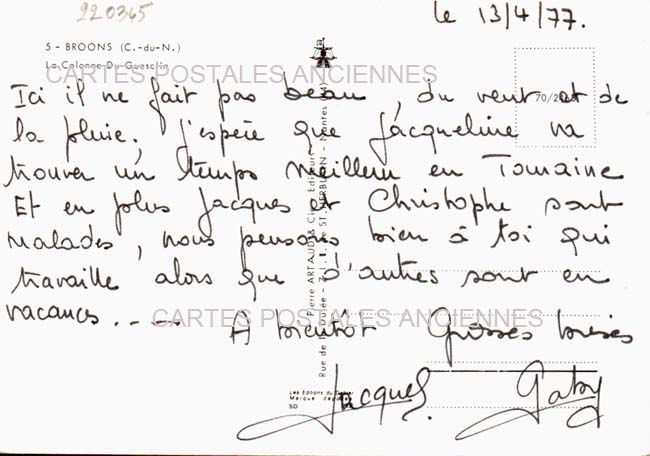 220365
le 13/4/77.
5 - BROONS (C.-du-N.)
La Colonne Du Guesclin
CARTES POSTALES ANCIENNES
Ici il ne fait pas beau, du vent et de
70/2
la pluie. J'espère que Jacqueline va
trouver un temps meilleur en Touraine
Et en plus Jacques et Christophe sont
malades, nous pensons bien à toi qui
travaille alors que d'autres sont en
vacances.. --
CARTES POSTALES ANCIENNES
A bientôt Grosses bises
Jacques. Gaby
Pierre ARTAUD & Cie Editeurs
Les Editions du Gabier
Marque déposée
SD